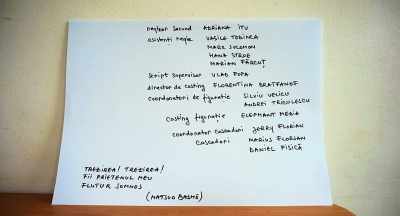 regizor secund ADRIANA ITU
asistenti regie VASILE TODINCA
MARK SOLOMON
HANA STROE
MARIAN FĂRCUȚ
script supervisor VLAD POPA
director de casting FLORENTINA BRATFANOF
coordonatori de figuratie SILVIU VELICU
ANDREI TRICULESCU
casting figuratie ELEPHANT MEDIA
coordonator cascadori JERRY FLORIAN
cascadori MARIUS FLORIAN
DANIEL PISICĂ
TREZIREA! TREZIREA!
FII PRIETENUL MEU
FLUTUR SOMNOS
(MATSUO BASHÔ)